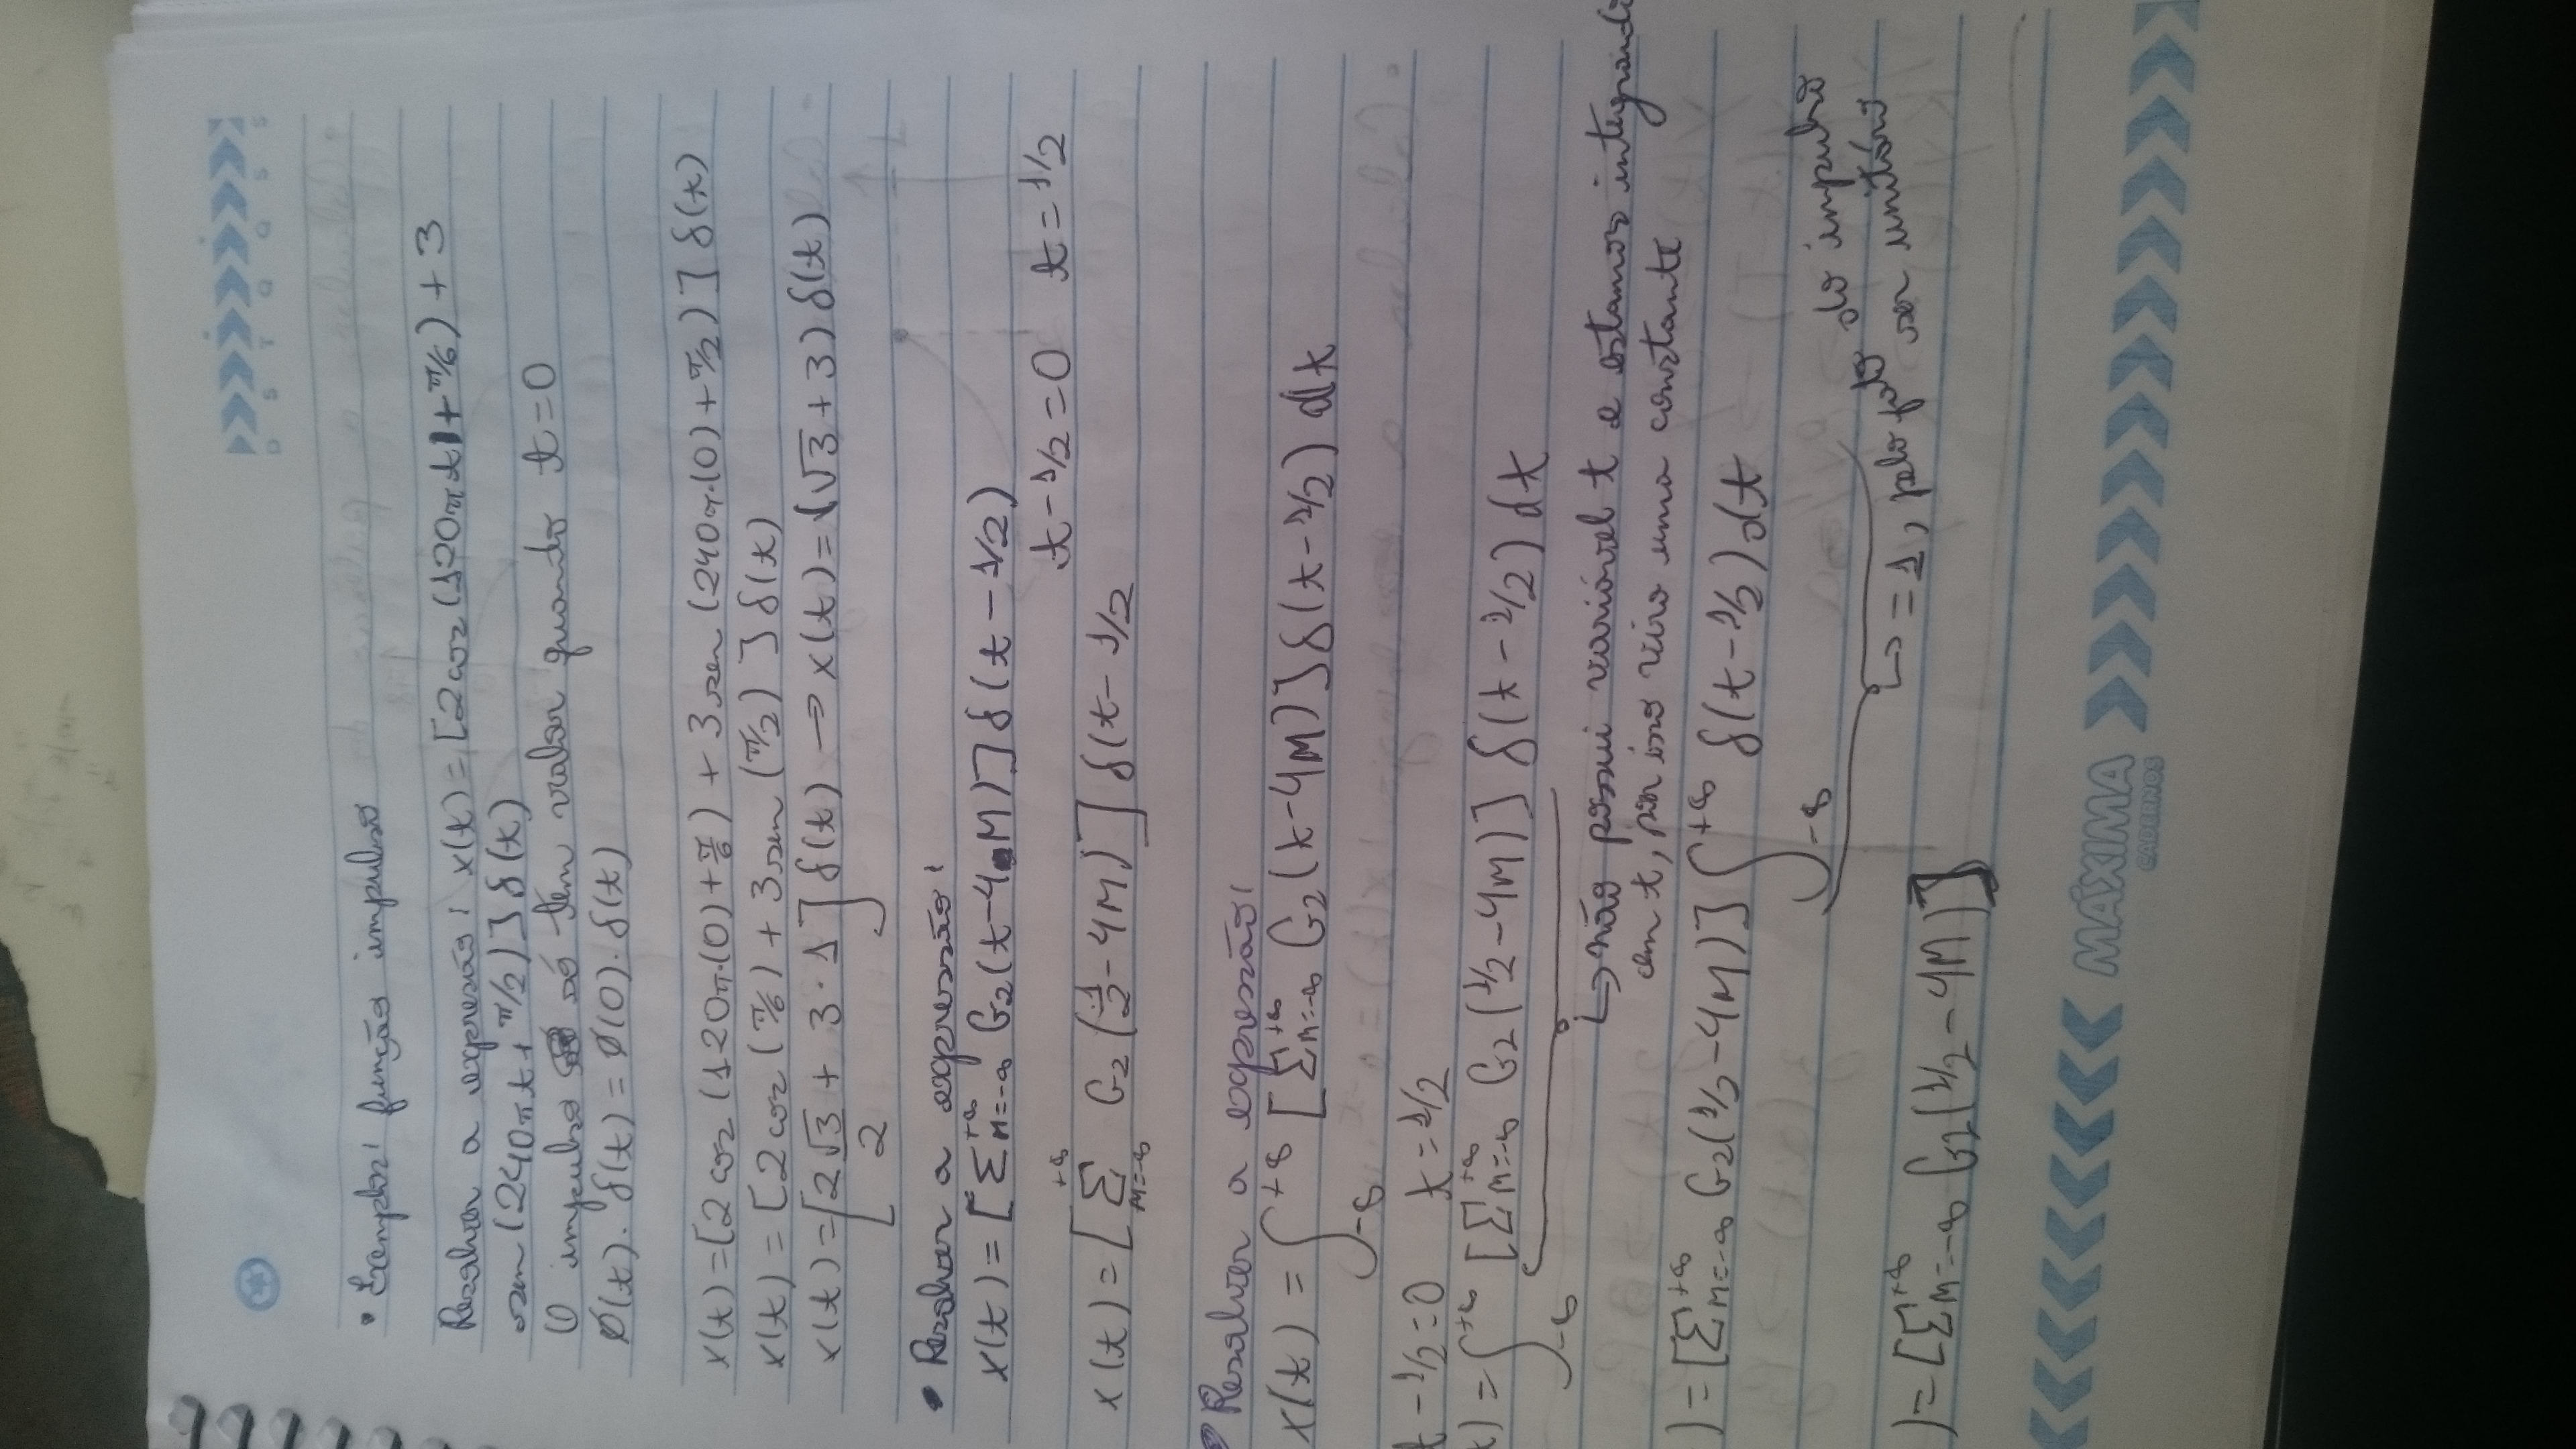 D S T Q Q S S
• Exemplos: função impulso
Resolver a expressão: x(t) = [2cos(120πt + π/6) + 3
sen(240πt + π/2)] δ(t)
O impulso só tem valor quando t = 0
Ø(t) . δ(t) = Ø(0) . δ(t)
x(t) = [2 cos (120π.(0) + π/6) + 3 sen (240π.(0) + π/2)] δ(t)
x(t) = [2 cos (π/6) + 3 sen (π/2)] δ(t)
x(t) = [2√3/2 + 3 · 1] δ(t) → x(t) = (√3 + 3) δ(t)
• Resolver a expressão:
x(t) = [Σ M=-∞ +∞ G2(t-4M)] δ(t - 1/2)
t - 1/2 = 0 t = 1/2
x(t) = [Σ M=-∞ +∞ G2(1/2 - 4M)] δ(t - 1/2
• Resolver a expressão:
x(t) = ∫ -∞ +∞ [Σ M=-∞ +∞ G2(t-4M)] δ(t - 1/2) dt
t - 1/2 = 0 t = 1/2
t) = ∫ -∞ +∞ [Σ M=-∞ +∞ G2(1/2 - 4M)] δ(t - 1/2) dt
↳ não possui variável t e estamos integrando
em t, por isso viro uma constante
) = [Σ M=-∞ +∞ G2(1/2 - 4M)] ∫ -∞ +∞ δ(t - 1/2) dt
↳ = 1, pelo fato do impulso
ser unitário
) = [Σ M=-∞ +∞ G2(1/2 - 4M)]
MÁXIMA
CADERNOS